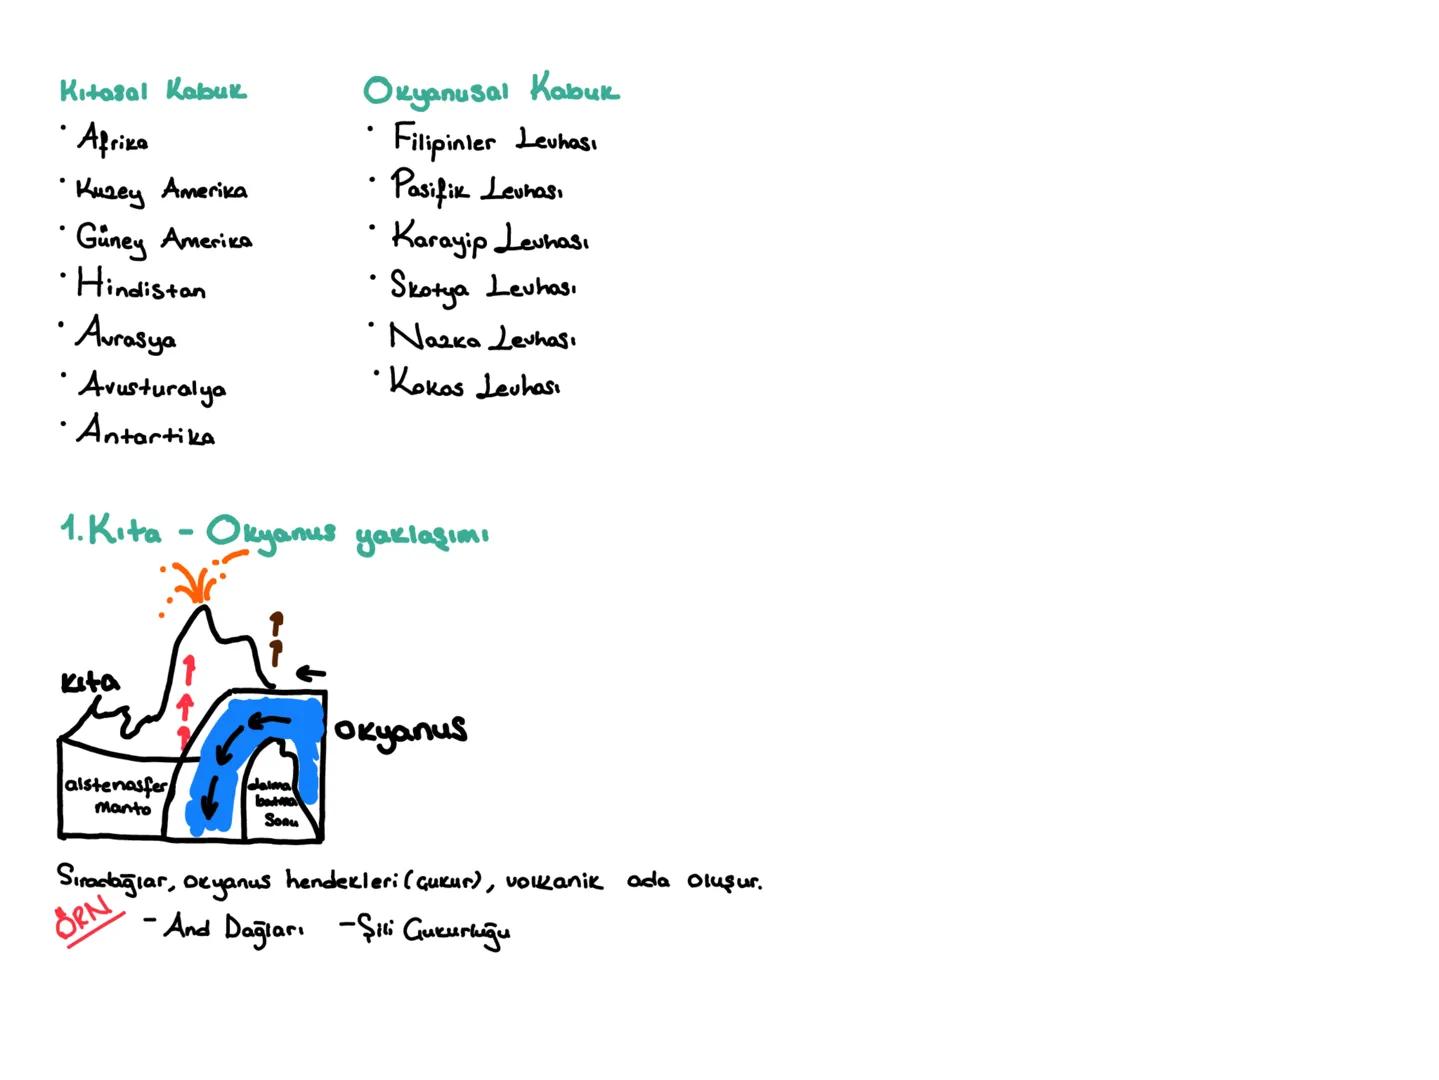 Kıtasal Kabuk
• Afrika
• Kuzey Amerika
• Güney Amerika
• Hindistan
• Avrasya
• Avusturalya
• Antartika
Okyanusal Kabuk
• Filipinler Levhası
• Pasifik Levhası
• Karayip Levhası
• Skotya Levhası
• Nazka Levhası
• Kokos Levhası
1. Kıta - Okyanus yaklaşımı
Kıta
Okyanus
alstenasfer
manto
dalma
batma
Sonu
Sıradağlar, okyanus hendekleri (çukur), volkanik ada oluşur.
ÖRN - And Dağları - Şili Çukurluğu